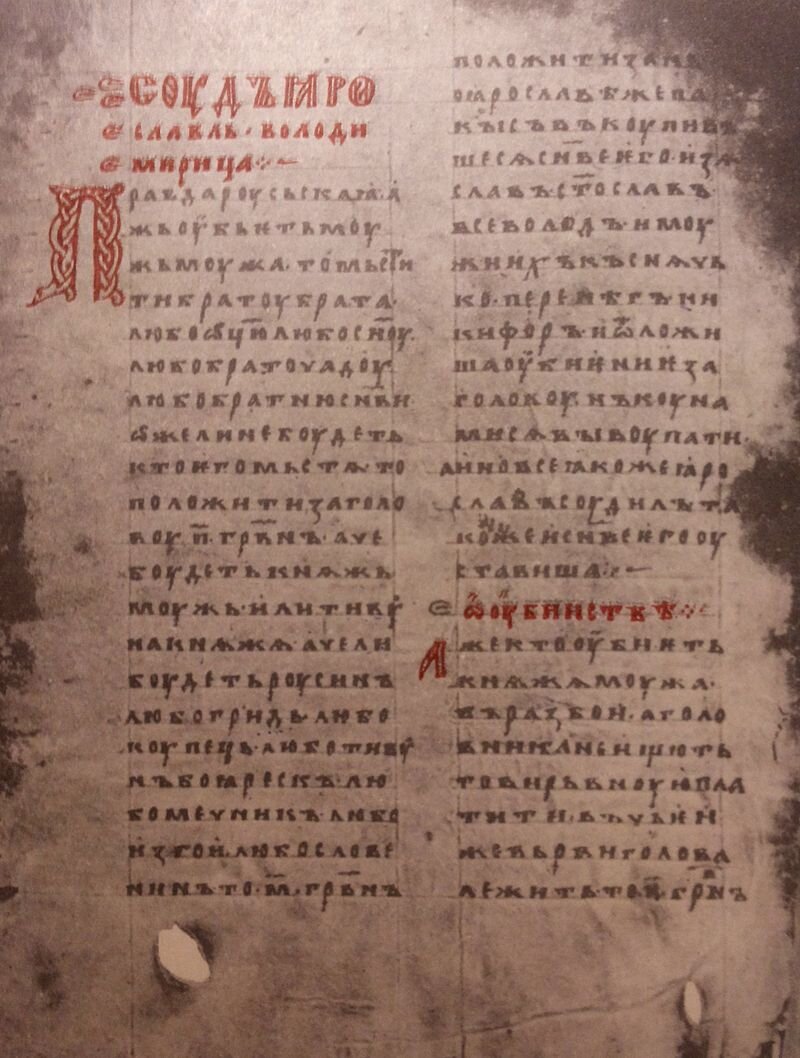 СОУДЪ ꙖРО
СЛАВЛЬ · ВОЛОДИ
МИРИЦА ⁘ ~
ПРАВДА РОУСЬСКАꙖ · А
ЖЬ ОУБЬѤТЬ МОУ
ЖЬ МОУЖА · ТО МЬСТИ
ТИ БРАТОУ БРАТА ·
ЛЮБО ѾЦЮ ЛЮБО СН҃ОУ ·
ЛЮБО БРАТОУЧАДОУ ·
ЛЮБО БРАТНЮ СН҃ВИ
ѠЖЕ ЛИ НЕ БОУДЕТЬ
КТО ѤГО МЬСТѦ ТО
ПОЛОЖИТИ ЗА ГОЛО
ВОУ · П҃ · ГРВ҃НЪ · АЧЕ
БОУДЕТЬ КНѦЖЬ
МОУЖЬ · ИЛИ ТИВОУ
НА КНѦЖѦ · АЧЕ ЛИ
БОУДЕТЬ РОУСИНЪ
ЛЮБО ГРИДЬ · ЛЮБО
КОУПЕЦЬ · ЛЮБО ТИВОУ
НЪ БОꙖРЕСКЪ · ЛЮ
БО МЕЧНИКЪ · ЛЮБО
ИЗГОИ · ЛЮБО СЛОВЕ
НИНЪ ТО · М҃ · ГРВ҃НЪ
ПОЛОЖИТИ ЗА НЬ
ПО ꙖРОСЛАВѢ ЖЕ ПА
КЫ СЪВЪКОУПИВЪ
ШЕСѦ СН҃ВЕ ѤГО · ИЗѦ
СЛАВЪ СТ҃ОСЛАВЪ ·
ВСЕВОЛОДЪ · И МОУ
ЖИ ИХЪ КЪСНѦЧЬ
КО · ПЕРЕНѢГЪ НИ
КИФОРЪ · И ѾЛОЖИ
ША ОУБИѤНИѤ ЗА
ГОЛОВОУ · НЪ КОУНА
МИ СѦ ВЫКОУПАТИ ·
А ИНО ВСЕ ꙖКОЖЕ ꙖРО
СЛАВЪ СОУДИЛЪ ТА
КОЖЕ И СН҃ВЕ ѤГО ОУ
СТАВИША ⁘ ~
Ѡ ОУБИИСТВѢ ⁘
АЖЕ КТО ОУБИѤТЬ
КНѦЖѦ МОУЖА ·
ВЪ РАЗБОИ · А ГОЛО
ВНИКА НЕ ИЩЮТЬ
ТО ВИРЬВНОУЮ ПЛА
ТИТИ · ВЪ ЧЬѤИ
ЖЕ ВЬРВИ ГОЛОВА
ЛЕЖИТЬ ТО · П҃ · ГРВ҃НЪ